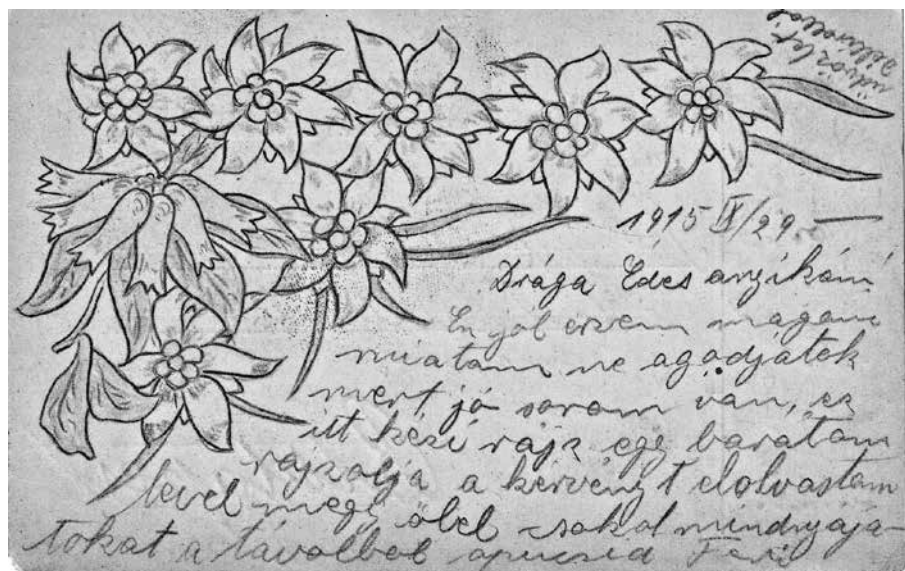 1915 IX/29.
Drága Édes anyikám
En jól érzem magam
miatam ne agodjátok
mert jó sorom van, ez
itt kézi rajz egy barátom
rajzolja a kérvényt elolvastam
level megy ölel csokol mindnyájá-
tokat a távolbol apucsid Feri
üdvözlet